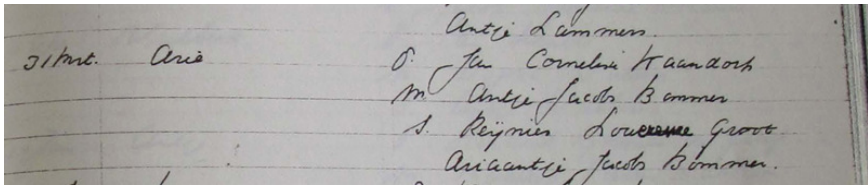 Antje Lammers.
31 Mrt. Arie P. Jan Cornelisse Kaandorp
M. Antje Jacobs Bommer
S. Reijnier Groot
Ariaantje Jacobs Bommer.